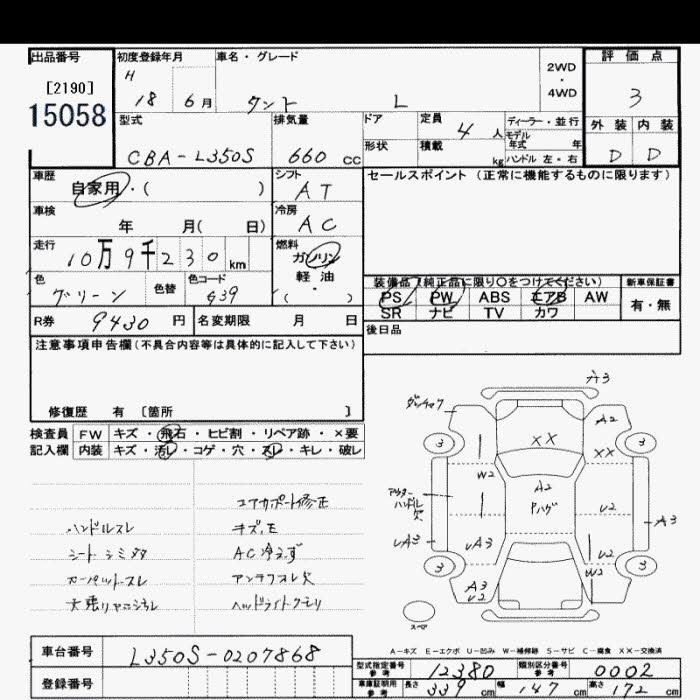 出品番号 初度登録年月 車名・グレード 評価点
[2190] H 2WD
15058 18 6月 タント L ・ 3
4WD
型式 排気量 ドア 定員 4人 ディーラー・並行 外装 内装
モデル年式 年
CBA-L350S 660cc 形状 積載 kg ハンドル 左・右 D D
車歴 自家用・( ) シフト AT セールスポイント (正常に機能するものに限ります)
車検 年 月( 日) 冷房 AC
走行 10万9千230km 燃料 ガソリン
軽油
・( )
色 グリーン 色替 色コード G39
装備品(純正品に限り○をつけてください) 新車保証書
PS PW ABS エアB AW 有・無
SR ナビ TV カワ
R券 9430円 名変期限 月 日 後日品
注意事項申告欄(不具合内容等は具体的に記入して下さい)
修復歴 有 〔箇所 〕
検査員 FW キズ・飛石・ヒビ割・リペア跡・×要
記入欄 内装 キズ・汚レ・コゲ・穴・スレ・キレ・破レ
コアサポート修正
ハンドルスレ キズ、エ
シートシミ AC冷えず
カーペットスレ アンテナスレ欠
天張リ ヘッドライトクモリ
A3
A2
3 XX 3
XX
W2
A2
アウターハンドル欠 Pハゲ U2
A3
UA3 UA3 U2
W2
3 3
A3
U2
スペア
A-キズ E-エクボ U-凹み W-補修跡 S-サビ C-腐食 XX-交換済
車台番号 L350S-0207868
登録番号
型式指定番号 参考 12380 類別区分番号 参考 0002
車庫証明用 参考 長さ 339cm 幅 147cm 高さ 172cm